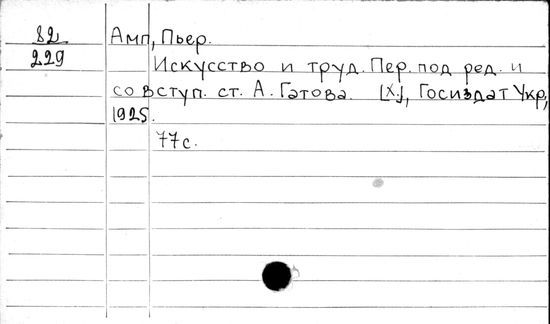 82 Амп, Пьер.
229 Искусство и труд. Пер. под ред. и
со вступ. ст. А. Гатова. [Х.], Госиздат Укр,
1925.
77 с.